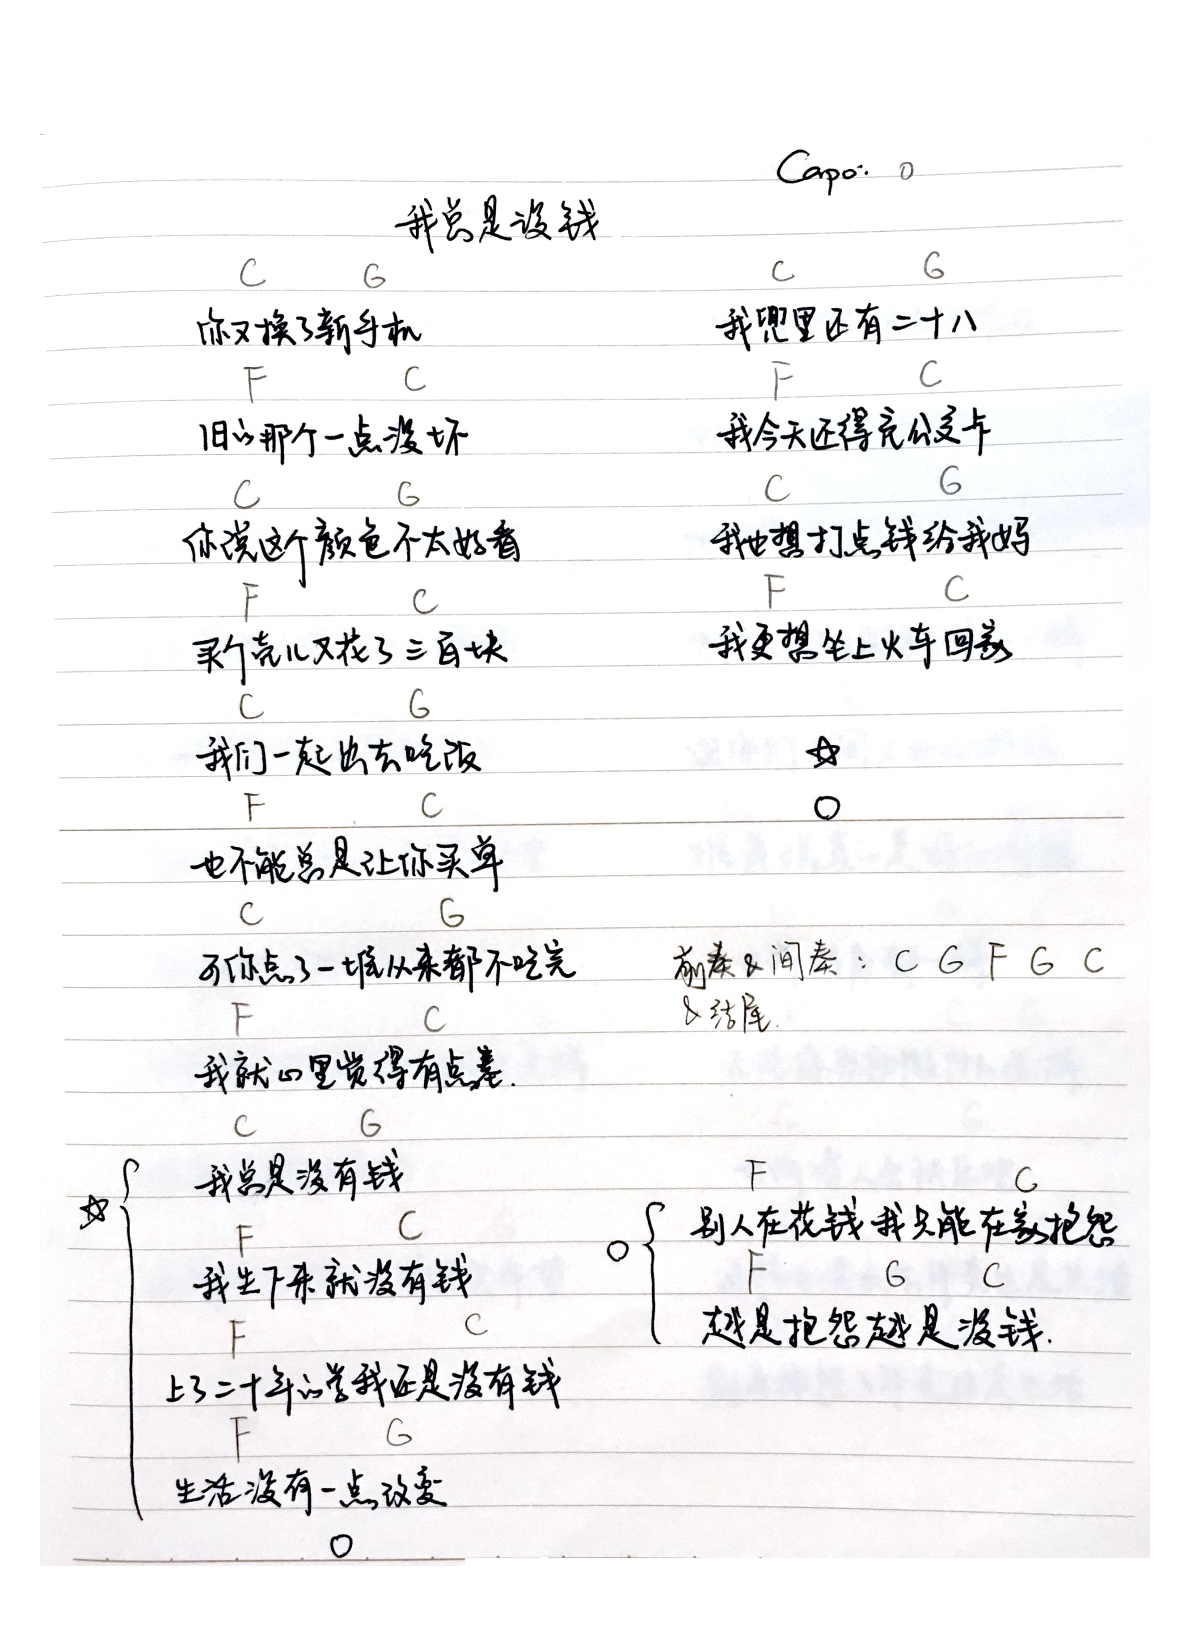 Capo: 0
我总是没钱
C G
你又换了新手机
F C
旧的那个一点没坏
C G
你说这个颜色不太好看
F C
买个壳儿又花了三百块
C G
我们一起出去吃饭
F C
也不能总是让你买单
C G
可你点了一堆从来都不吃完
F C
我就心里觉得有点差.
C G
☆ 我总是没有钱
F C
我生下来就没有钱
F C
上了二十年的学我还是没有钱
F G
生活没有一点改变
○
C G
我兜里还有二十八
F C
我今天还得充公交卡
C G
我也想打点钱给我妈
F C
我更想坐上火车回家
☆
○
前奏&间奏: C G F G C
&结尾.
F C
○ 别人在花钱 我只能在家抱怨
F G C
越是抱怨越是没钱.